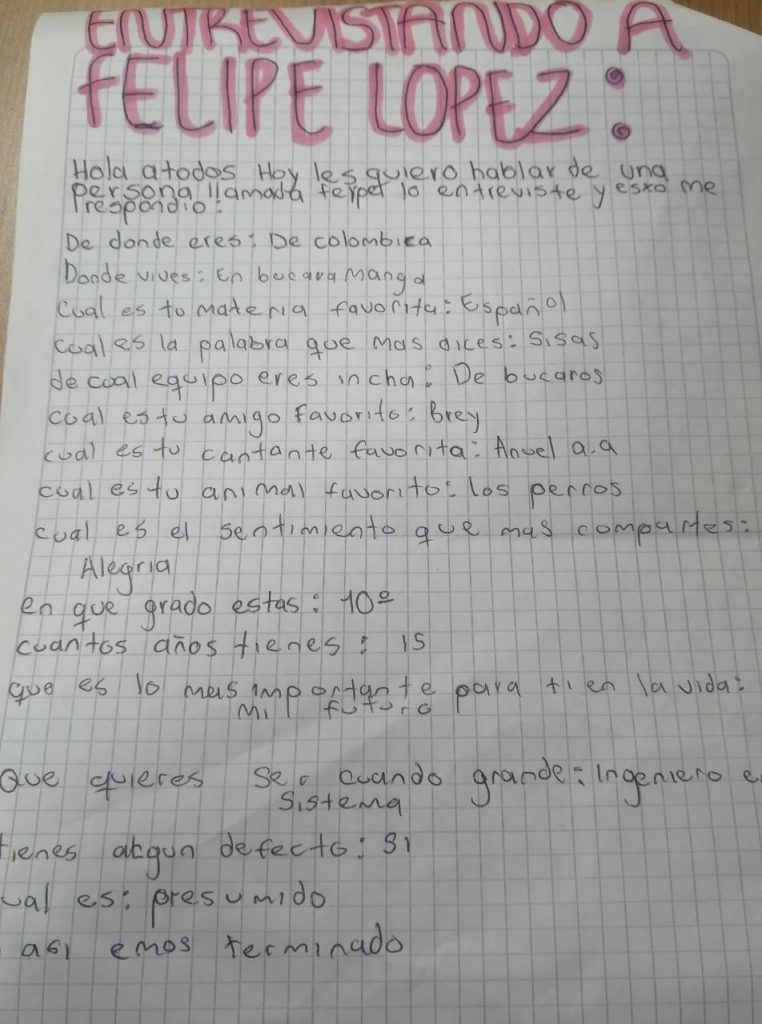 ENTREVISTANDO A
FELIPE LOPEZ:
Hola a todos Hoy les quiero hablar de una
persona llamada felipe lo entreviste y esto me
respondio:
De donde eres: De colombia
Donde vives: En bucaramanga
Cual es tu materia favorita: Español
cual es la palabra que mas dices: sisas
de cual equipo eres incha: De bucaros
cual es tu amigo favorito: Brey
cual es tu cantante favorita: Anuel a.a
cual es tu animal favorito: los perros
cual es el sentimiento que mas compartes:
Alegria
en que grado estas: 10º
cuantos años tienes: 15
que es lo mas importante para ti en la vida:
Mi futuro
Que quieres ser cuando grande: Ingeniero e
sistema
tienes algun defecto: si
ual es: presumido
asi emos terminado